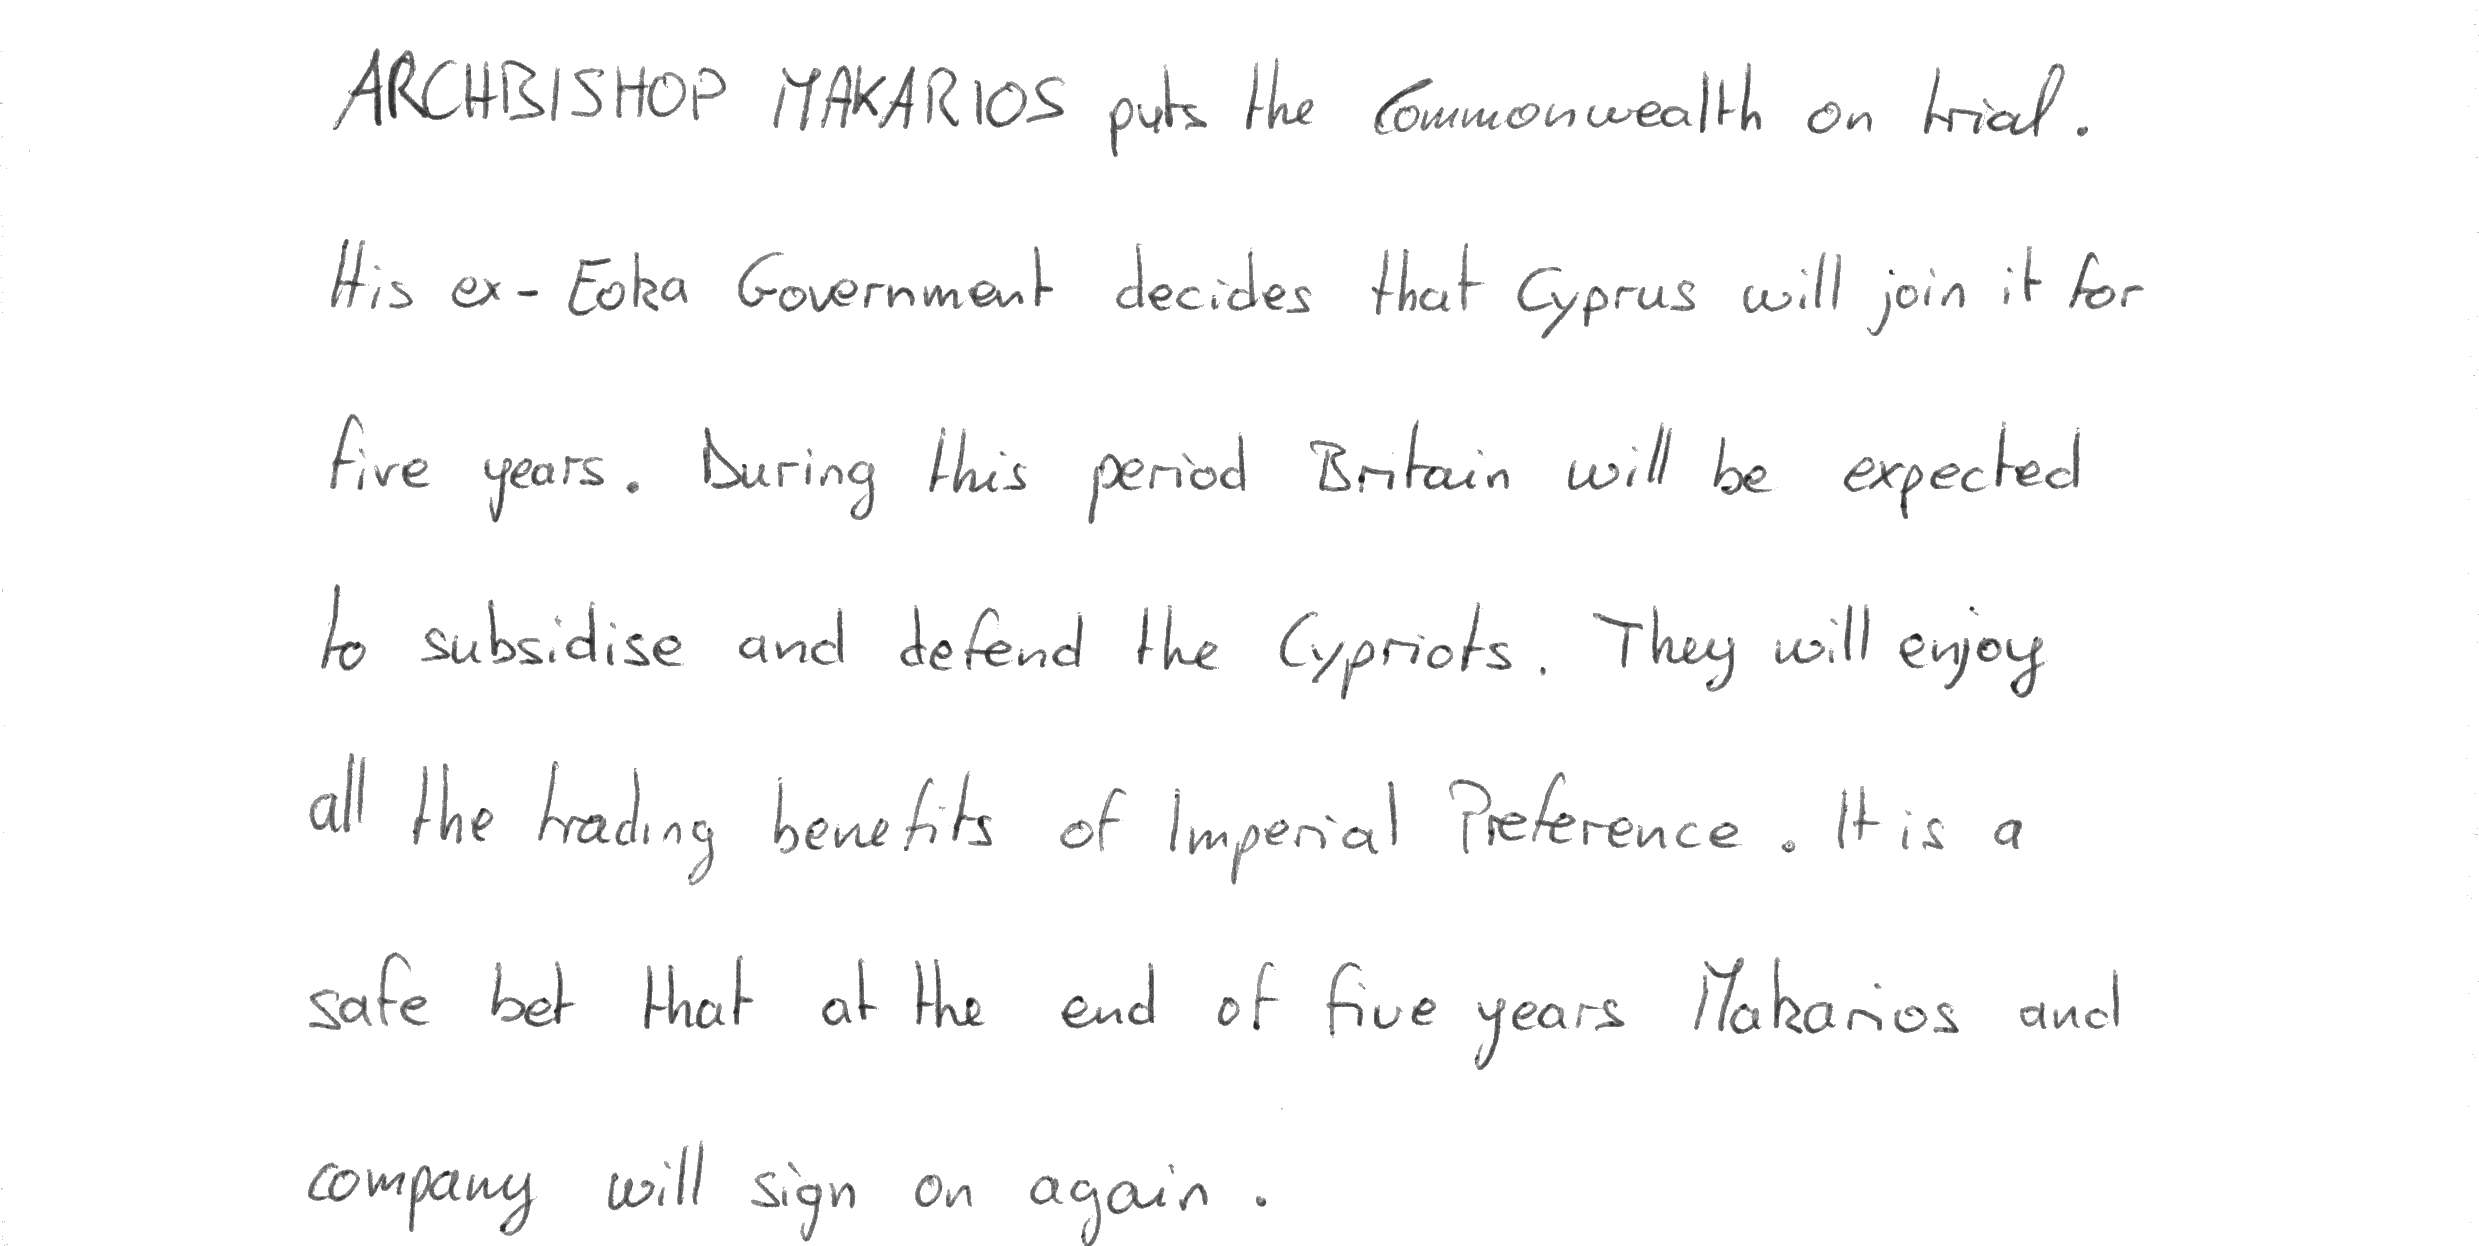 ARCHBISHOP MAKARIOS puts the Commonwealth on trial.
His ex-Eoka Government decides that Cyprus will join it for
five years. During this period Britain will be expected
to subsidise and defend the Cypriots. They will enjoy
all the trading benefits of Imperial Preference. It is a
safe bet that at the end of five years Makarios and
company will sign on again.